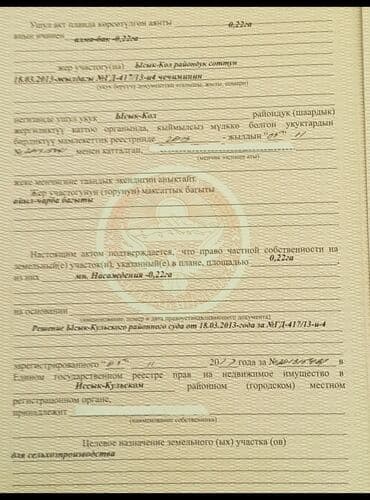 Ушул акт планда көрсөтүлгөн аянты 0,22га
анын ичинен алма-бак -0,22га
жер участогу(на) Ысык-Көл райондук соттун
18.03.2013-жылдагы №ГД-417/13-и4 чечиминин
(укук берүүчү документтин аталышы, жылы, номери)
негизинде ушул укук Ысык-Көл райондук (шаардык)
жергиликтүү каттоо органында, кыймылсыз мүлккө болгон укуктардын
бирдиктүү мамлекеттик реестринде - жылдын " 11
№ менен катталган,
(менчик ээсинин аты)
жеке менчигине таандык экендигин аныктайт.
Жер участогунун (торунун) максаттык багыты
айыл-чарба багыты
Настоящим актом подтверждается, что право частной собственности на
земельный(е) участок(и), указанный(е) в плане, площадью 0,22га
из них мн. Насаждения -0,22га
на основании
(наименование, номер и дата правоустанавливающего документа)
Решение Ысык-Кульского районного суда от 18.03.2013-года за №ГД-417/13-и-4
зарегистрированного " 11 20 года за № в
Едином государственном реестре прав на недвижимое имущество в
Иссык-Кульском районном (городском) местном
регистрационном органе,
принадлежит
(наименование собственника)
Целевое назначение земельного (ых) участка (ов)
для сельхозпроизводства